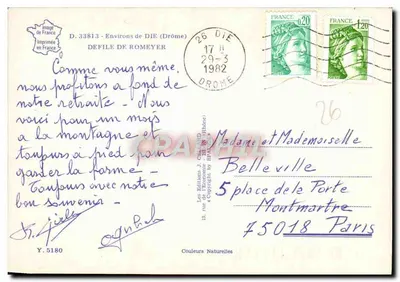 D. 33813 - Environs de DIE (Drôme)
DEFILE DE ROMEYER
Image de France
Imprimée en France
26 DIE
17 H
29-3
1982
DROME
FRANCE
0,20
FRANCE
1,20
26
Comme vous même,
nous profitons à fond de
notre retraite - Nous
voici pour un mois
à la montagne et
toujours à pied pour
garder la forme -
Toujours avec notre
bon souvenir -
Madame et Mademoiselle
Belleville
5 place de la Porte
Montmartre
75018 Paris
Y. 5180
Couleurs Naturelles